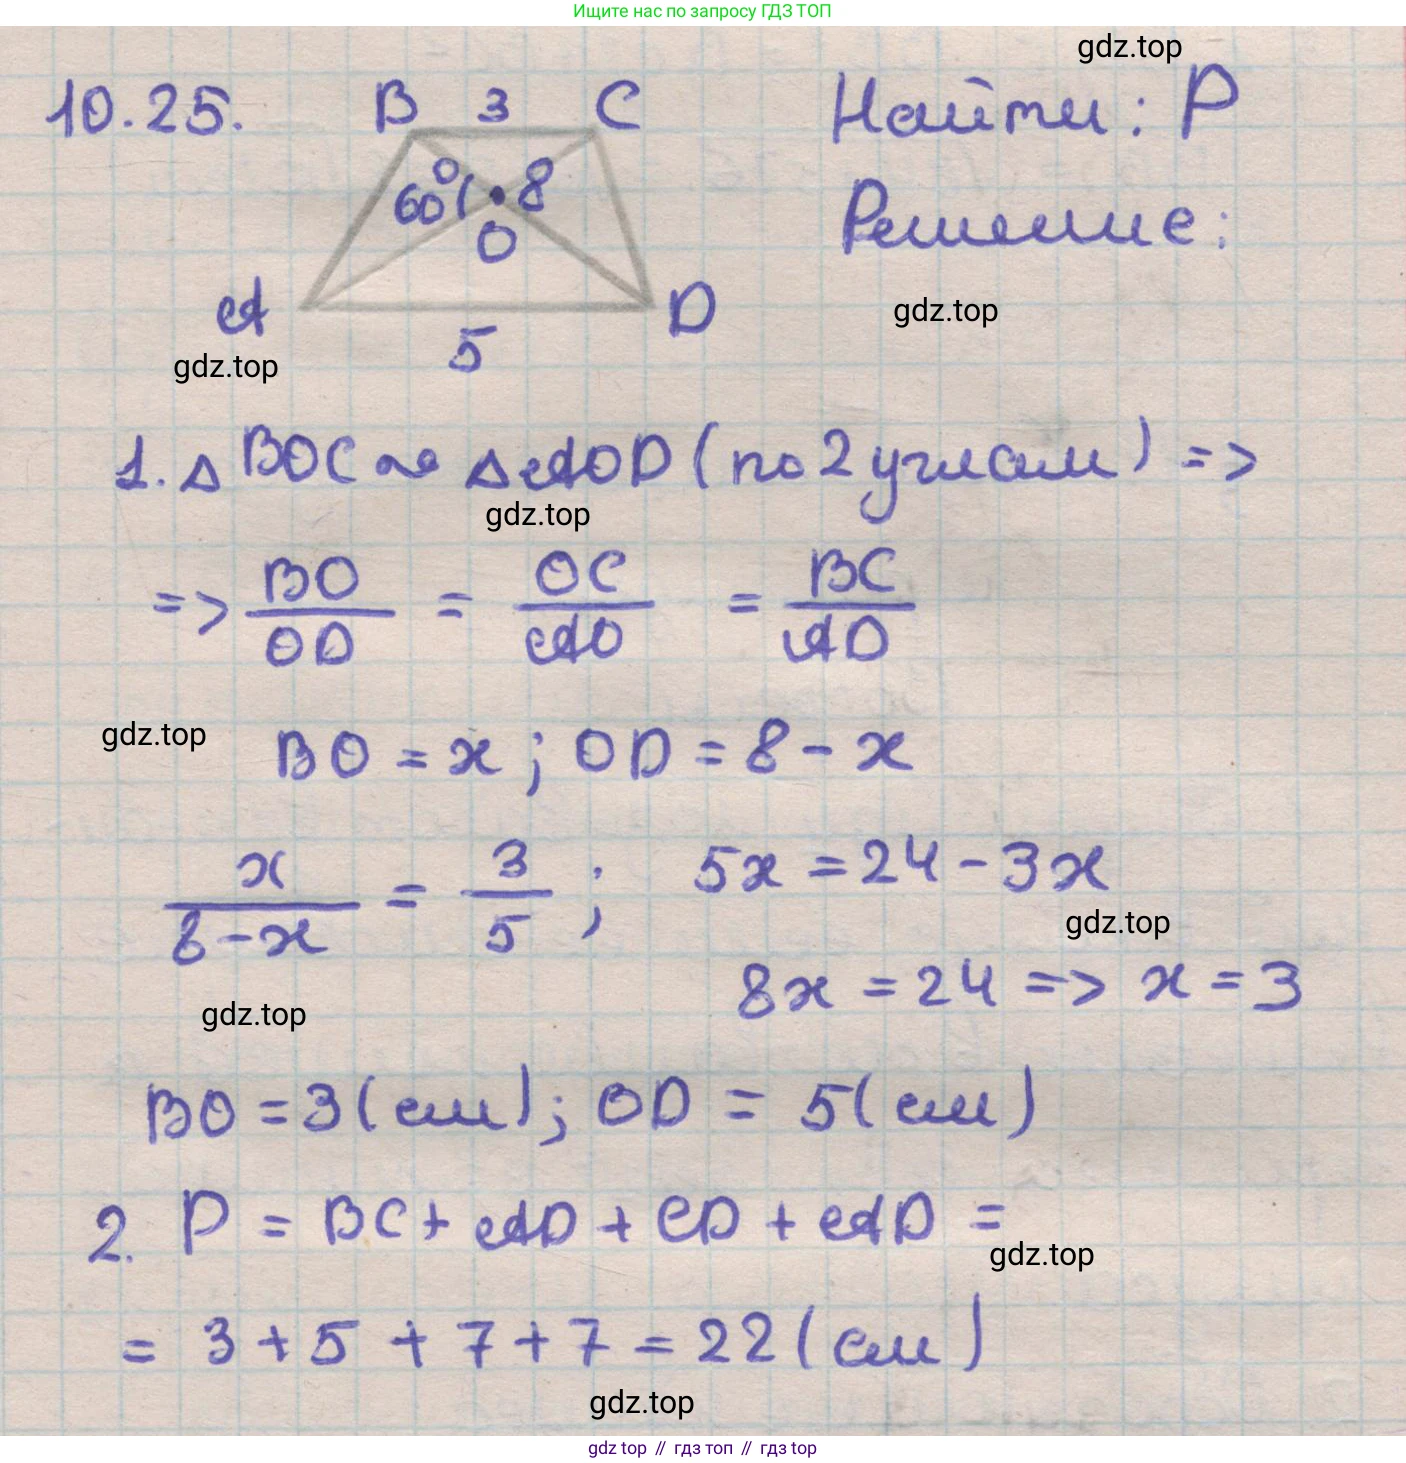 Ищите нас по запросу ГДЗ ТОП
gdz.top
10.25. B 3 C Найти: P
60° 8
O
Решение:
A D
gdz.top
5
gdz.top
1. △BOC ~ △AOD (по 2 углам) =>
gdz.top
=> BO/OD = OC/AO = BC/AD
gdz.top
BO = x; OD = 8 - x
x/8-x = 3/5; 5x = 24 - 3x
gdz.top
8x = 24 => x = 3
gdz.top
BO = 3 (см); OD = 5 (см)
2. P = BC + AD + CD + AD =
gdz.top
= 3 + 5 + 7 + 7 = 22 (см)
gdz.top
gdz top // гдз топ // гдз top